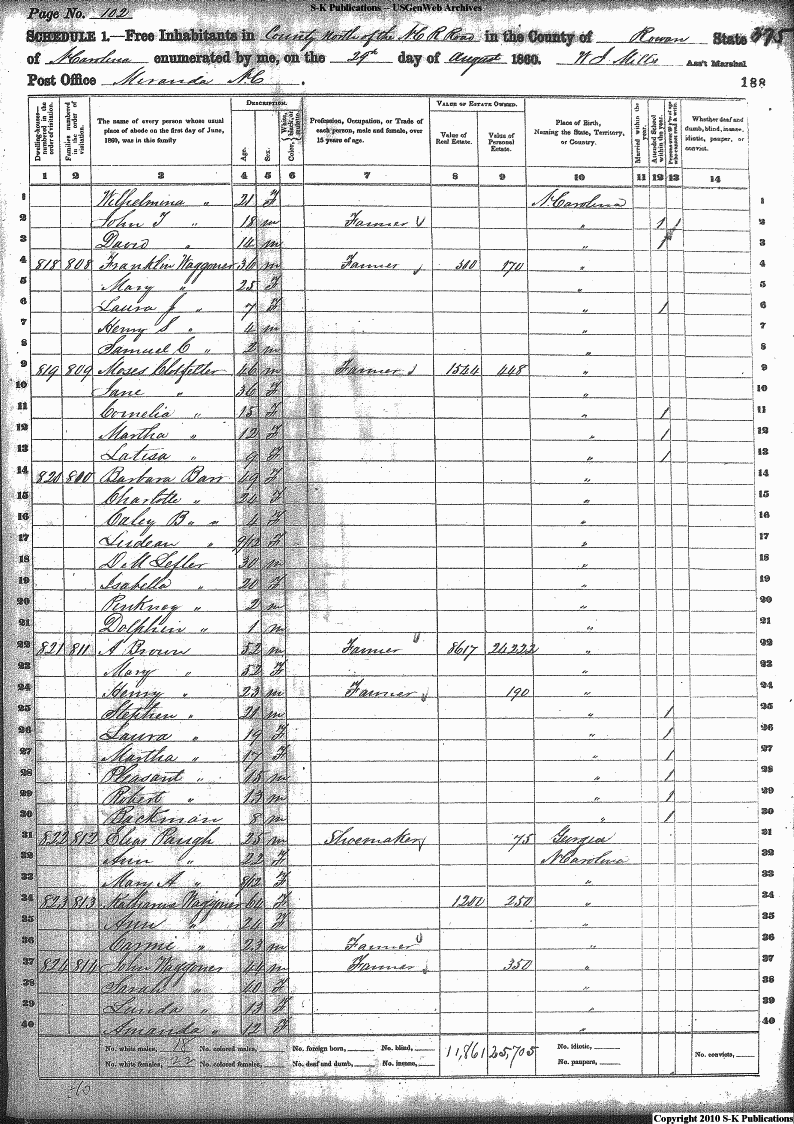 S-K Publications – USGenWeb Archives
Page No. 102
SCHEDULE 1.—Free Inhabitants in County North of the N C R Road in the County of Rowan State 375
of N Carolina enumerated by me, on the 29th day of August 1860. W S Mills Ass't Marshal
Post Office Miranda N C. 188
Dwelling-houses—numbered in the order of visitation.
Families numbered in the order of visitation.
The name of every person whose usual place of abode on the first day of June, 1860, was in this family
DESCRIPTION.
Age.
Sex.
Color, White, black, or mulatto.
Profession, Occupation, or Trade of each person, male and female, over 15 years of age.
VALUE OF ESTATE OWNED.
Value of Real Estate.
Value of Personal Estate.
Place of Birth, Naming the State, Territory, or Country.
Married within the year.
Attended School within the year.
Persons over 20 y'rs of age who cannot read & write.
Whether deaf and dumb, blind, insane, idiotic, pauper, or convict.
1 2 3 4 5 6 7 8 9 10 11 12 13 14
1 Wilhelmina " 21 F N. Carolina 1
2 John T " 18 m Farmer " 1 1 2
3 David " 14 m " 1 3
4 818 808 Franklin Waggoner 36 m Farmer 300 170 " 4
5 Mary " 25 F " 5
6 Laura J " 7 F " 1 6
7 Henry S " 4 m " 7
8 Samuel C " 2 m " 8
9 819 809 Moses Clodfelter 46 m Farmer 1544 448 " 9
10 Jane " 36 F " 10
11 Cornelia " 15 F " 1 11
12 Martha " 12 F " 1 12
13 Latisa " 9 F " 1 13
14 820 800 Barbara Barr 49 F " 14
15 Charlotte " 24 F " 15
16 Caley B " " 4 F " 16
17 " 9/12 F " 17
18 D M Lefler 30 m " 18
19 Isabella " 20 F " 19
20 Pinkney " 2 m " 20
21 Dolphin " 1 m " 21
22 821 811 A Brown 52 m Farmer 8617 24222 " 22
23 Mary " 52 F " 23
24 Henry " 23 m Farmer 190 " 24
25 Stephen " 21 m " 1 25
26 Laura " 19 F " 1 26
27 Martha " 17 F " 1 27
28 Pleasant " 15 m " 1 28
29 Robert " 13 m " 1 29
30 Backman " 8 m " 1 30
31 822 812 Elias Paugh 25 m Shoemaker 75 Georgia 31
32 Ann " 22 F N Carolina 32
33 Mary A " 8/12 F " 33
34 823 813 Waggoner 64 F 1200 250 " 34
35 Ann " 24 F " 35
36 Carmi " 23 m Farmer " 36
37 824 814 John Waggoner 44 m Farmer 350 " 37
38 Sarah " 40 F " 38
39 Lunda " 13 F " 39
40 Amanda " 12 F " 40
No. white males, 18 No. colored males, No. foreign born, No. blind, 11,861 25,705 No. idiotic, No. convicts,
No. white females, 22 No. colored females, No. deaf and dumb, No. insane, No. paupers,
40
Copyright 2010 S-K Publications